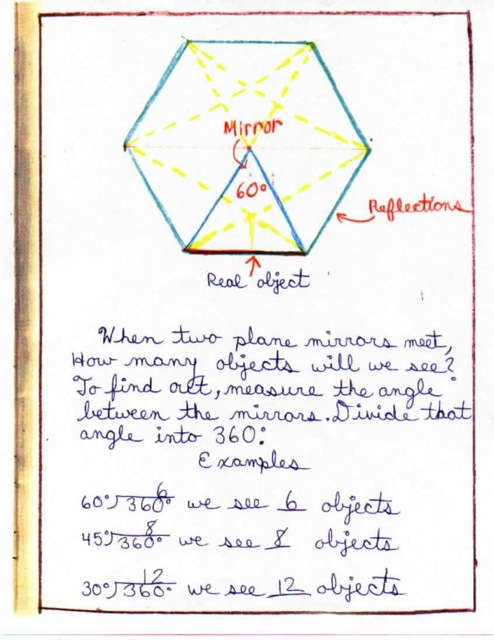 Mirror
60°
Reflections
Real object
When two plane mirrors meet,
How many objects will we see?
To find out, measure the angle
between the mirrors. Divide that
angle into 360°.
Examples
6
60°)360° we see 6 objects
8
45°)360° we see 8 objects
12
30°)360° we see 12 objects